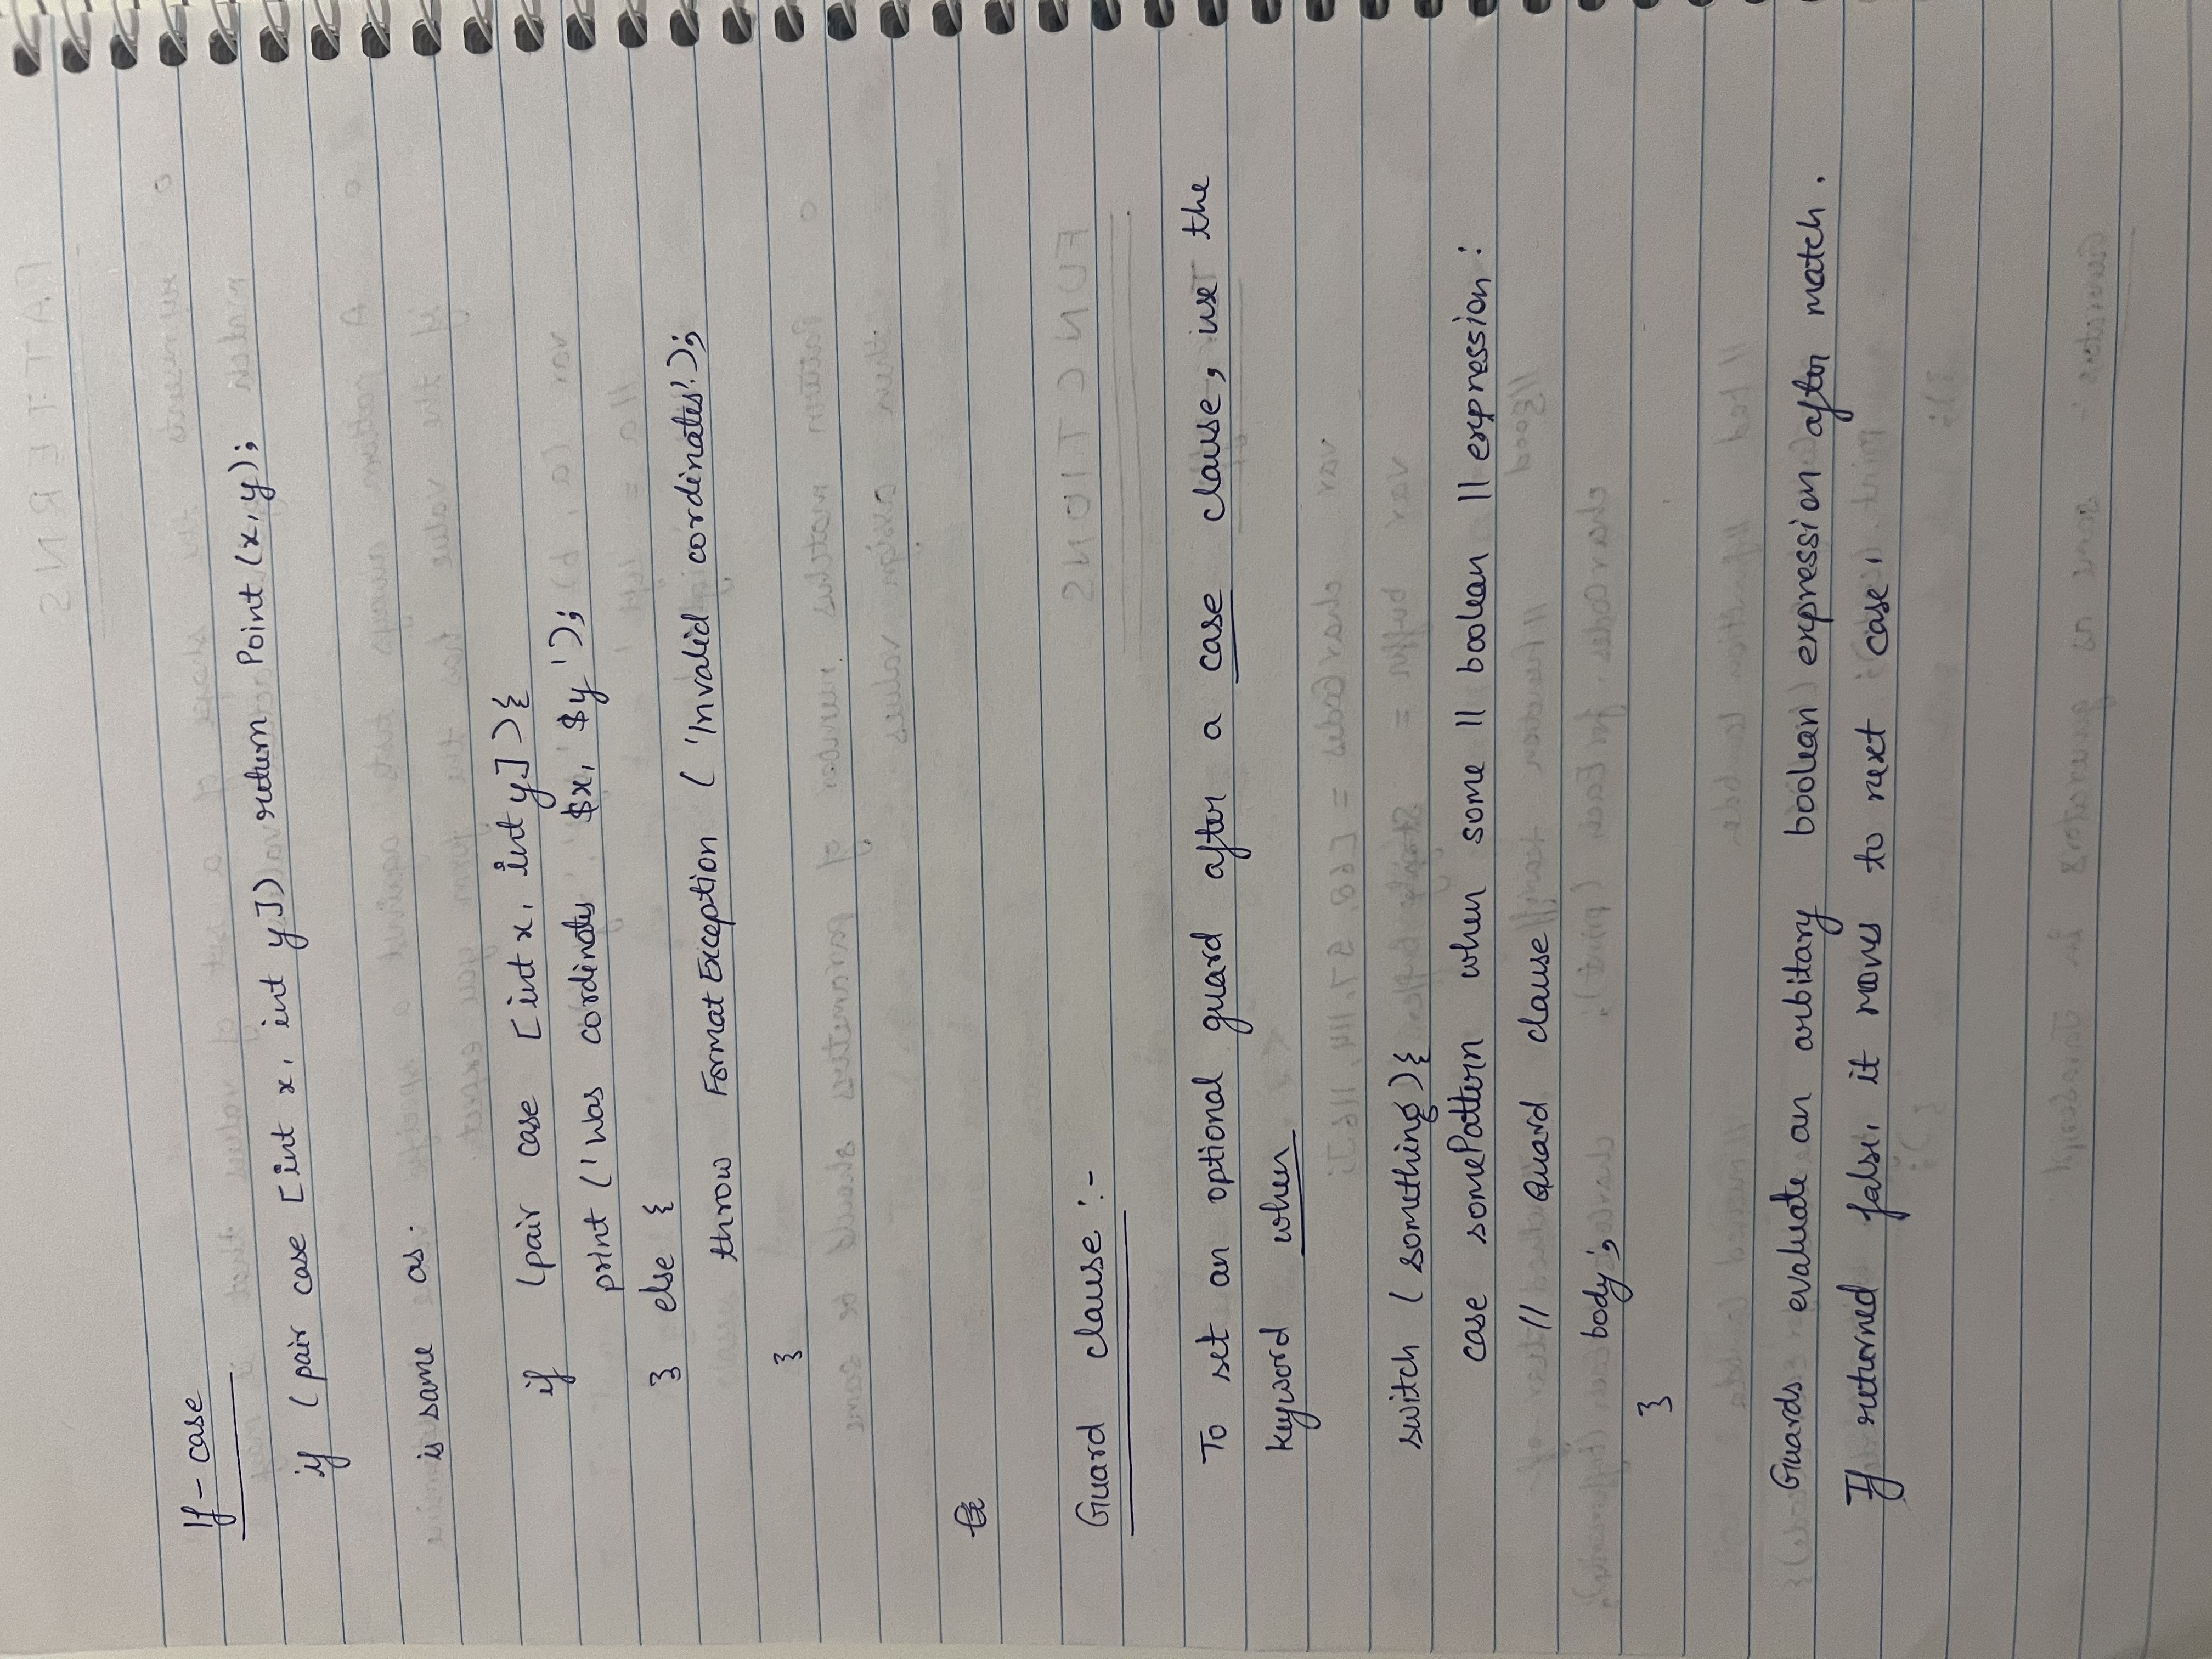 If - case
if (pair case [int x, int y]) return Point (x, y);
is same as.
if (pair case [int x, int y]){
print ('Was cordinates $x, $y');
} else {
throw FormatException ('Invalid cordinates'.);
}
Guard clause :-
To set an optional guard after a case clause, use the
keyword when
switch (something){
case somePattern when some || boolean || expression :
// Guard clause
body;
}
Guards evaluate an arbitary boolean expression after match.
If returned false, it moves to next case.